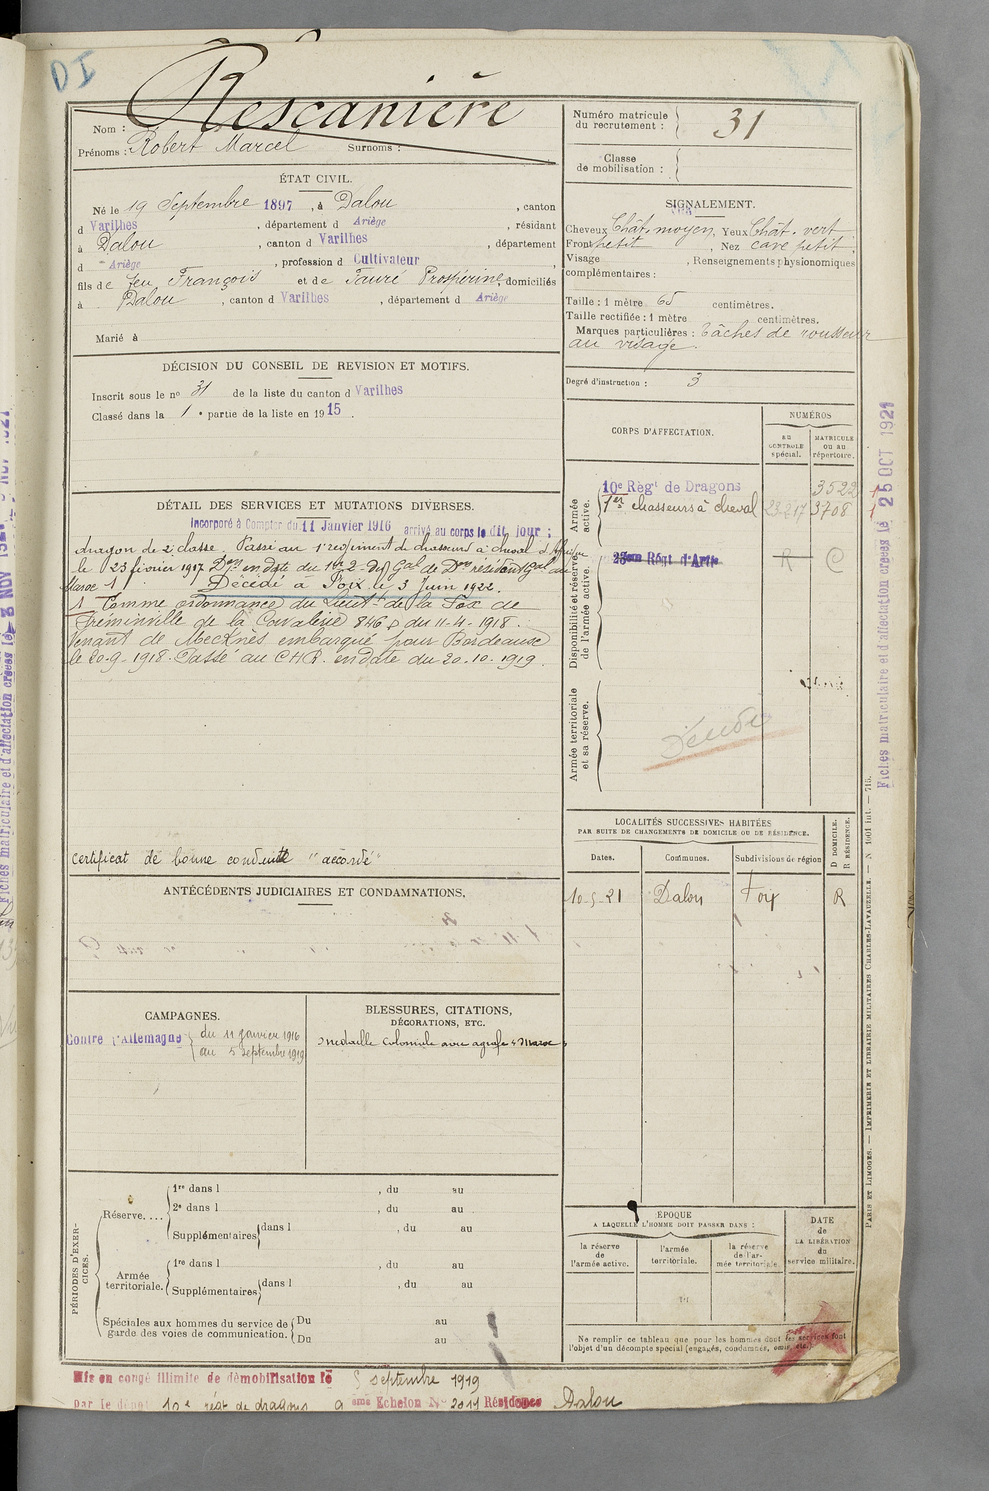 DI
Nom : Rescanière
Prénoms : Robert Marcel Surnoms :
Numéro matricule
du recrutement : 31
Classe
de mobilisation :
ÉTAT CIVIL.
Né le 19 Septembre 1897, à Dalou, canton
d Varilhes, département d Ariège, résidant
à Dalou, canton d Varilhes, département
d Ariège, profession d Cultivateur,
fils de feu François et de Fauré Prospérine, domiciliés
à Dalou, canton d Varilhes, département d Ariège
Marié à
SIGNALEMENT.
Cheveux Chât. moyen, Yeux Chât. vert
Front petit, Nez cave petit.
Visage , Renseignements physionomiques
complémentaires :
Taille : 1 mètre 65 centimètres.
Taille rectifiée : 1 mètre centimètres.
Marques particulières : tâches de rousseur
au visage.
Degré d'instruction : 3
DÉCISION DU CONSEIL DE REVISION ET MOTIFS.
Inscrit sous le n° 31 de la liste du canton d Varilhes
Classé dans la 1e partie de la liste en 1915.
CORPS D'AFFECTATION.
NUMÉROS
au
CONTROLE
spécial.
MATRICULE
OU AU
répertoire.
Armée
active.
10e Régt de Dragons 3522
1er chasseurs à cheval 23.2.17 3708
Disponibilité et réserve
de l'armée active.
23ème Régt d'Artie R C
Armée territoriale
et sa réserve.
DÉTAIL DES SERVICES ET MUTATIONS DIVERSES.
Incorporé à Compter du 11 Janvier 1916 arrivé au corps le dit jour ;
dragon de 2e classe. Passé au 1er régiment de chasseurs à cheval d'Afrique
le 23 février 1917
Maroc 1 Décédé à Foix le 3 Juin 1922.
1 Comme ordonnance du Lieutt de la Fox de
Fréminville de la Cavalerie 846 p du 11-4-1918.
Venant de Mecknès embarqué pour Bordeaux
le 20-9-1918. Passé au CHR. en date du 20.10.1919.
certificat de bonne conduite "accordé"
ANTÉCÉDENTS JUDICIAIRES ET CONDAMNATIONS.
LOCALITÉS SUCCESSIVES HABITÉES
PAR SUITE DE CHANGEMENTS DE DOMICILE OU DE RÉSIDENCE.
D DOMICILE.
R RÉSIDENCE.
Dates. Communes. Subdivisions de région
10-5-21 Dalou Foix R
CAMPAGNES.
Contre l'Allemagne du 11 janvier 1916
au 5 septembre 1919
BLESSURES, CITATIONS,
DÉCORATIONS, ETC.
Médaille Coloniale avec agrafe "Maroc"
PÉRIODES D'EXER-
CICES.
Réserve....
1re dans l , du au
2e dans l , du au
Supplémentaires dans l , du au
Armée
territoriale.
1re dans l , du au
Supplémentaires dans l , du au
Spéciales aux hommes du service de
garde des voies de communication.
Du au
Du au
ÉPOQUE
A LAQUELLE L'HOMME DOIT PASSER DANS :
la réserve
de
l'armée active.
l'armée
territoriale.
la réserve
de l'ar-
mée territoriale.
DATE
de
LA LIBÉRATION
du
service militaire.
Ne remplir ce tableau que pour les hommes dont les services font
l'objet d'un décompte spécial (engagés, condamnés, omis, etc.)
Mis en congé illimité de démobilisation le 5 septembre 1919
par le dépôt 10e régt de dragons 9 ème Echelon N° 2019 Résidence Dalou
Fiches matriculaire et d'affectation créées le 25 OCT 1921
PARIS ET LIMOGES. — IMPRIMERIE ET LIBRAIRIE MILITAIRES CHARLES-LAVAUZELLE. — N 1601 int. — 715.
Fiches matriculaire et d'affectation créées le